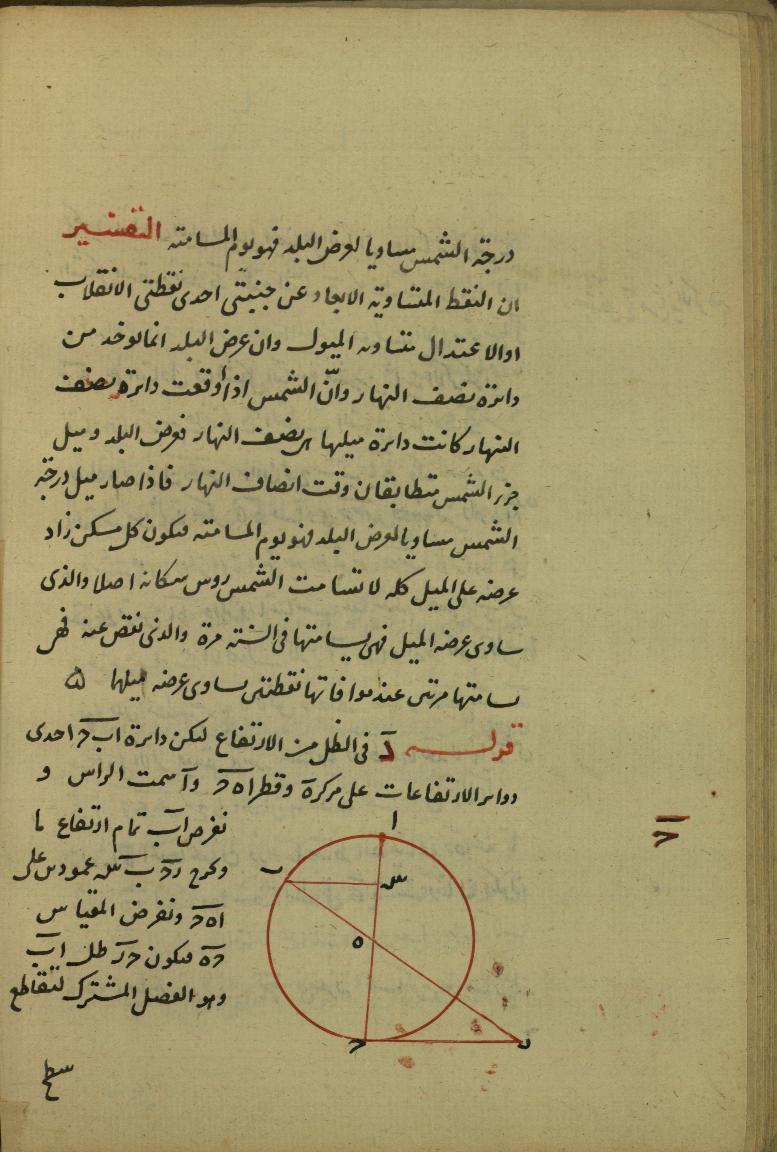 درجة الشمس مساويا لعرض البلد فهو يوم المسامتة التفسير
ان النقط المتساوية الابعاد عن جنبتى احدى نقطتى الانقلاب
او الاعتدال متساوية الميول وان عرض البلد انما يوخذ من
دايرة نصف النهار وانّ الشمس اذا وقعت دايرة نصف
النهار كانت دايرة ميلها هى نصف النهار فعرض البلد وميل
جزء الشمس متطابقان وقت انصاف النهار فاذا صار ميل درجة
الشمس مساويا لعرض البلد فهو يوم المسامتة فيكون كل مسكن زاد
عرضه على الميل كله لا تسامت الشمس روس سكانه اصلا والذى
ساوى عرضه الميل فهى يسامتها فى السنة مرة والذى نقص عنه فهى
يسامتها مرتين عند موافاتها نقطتين يساوى عرضه ميلها ه
قوله د فى الظل من الارتفاع لتكن دايرة اب ح احدى
دواير الارتفاعات على مركز ه وقطر ا ه ح و ا سمت الراس و
نفرض اب تمام ارتفاع ما
ونخرج رح ب س عمودين على
ا ه ح ونفرض المقياس
ح ه فيكون ح ر ظل اب
وهو الفصل المشترك لتقاطع
سطح
ا
ب
س
ه
ح
ر
ح